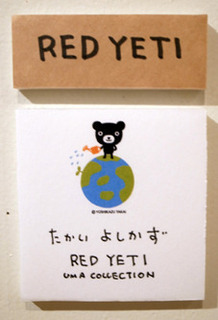 RED YETI
© YOSHIKAZU TAKAI
たかい よしかず
RED YETI
UMA COLLECTION